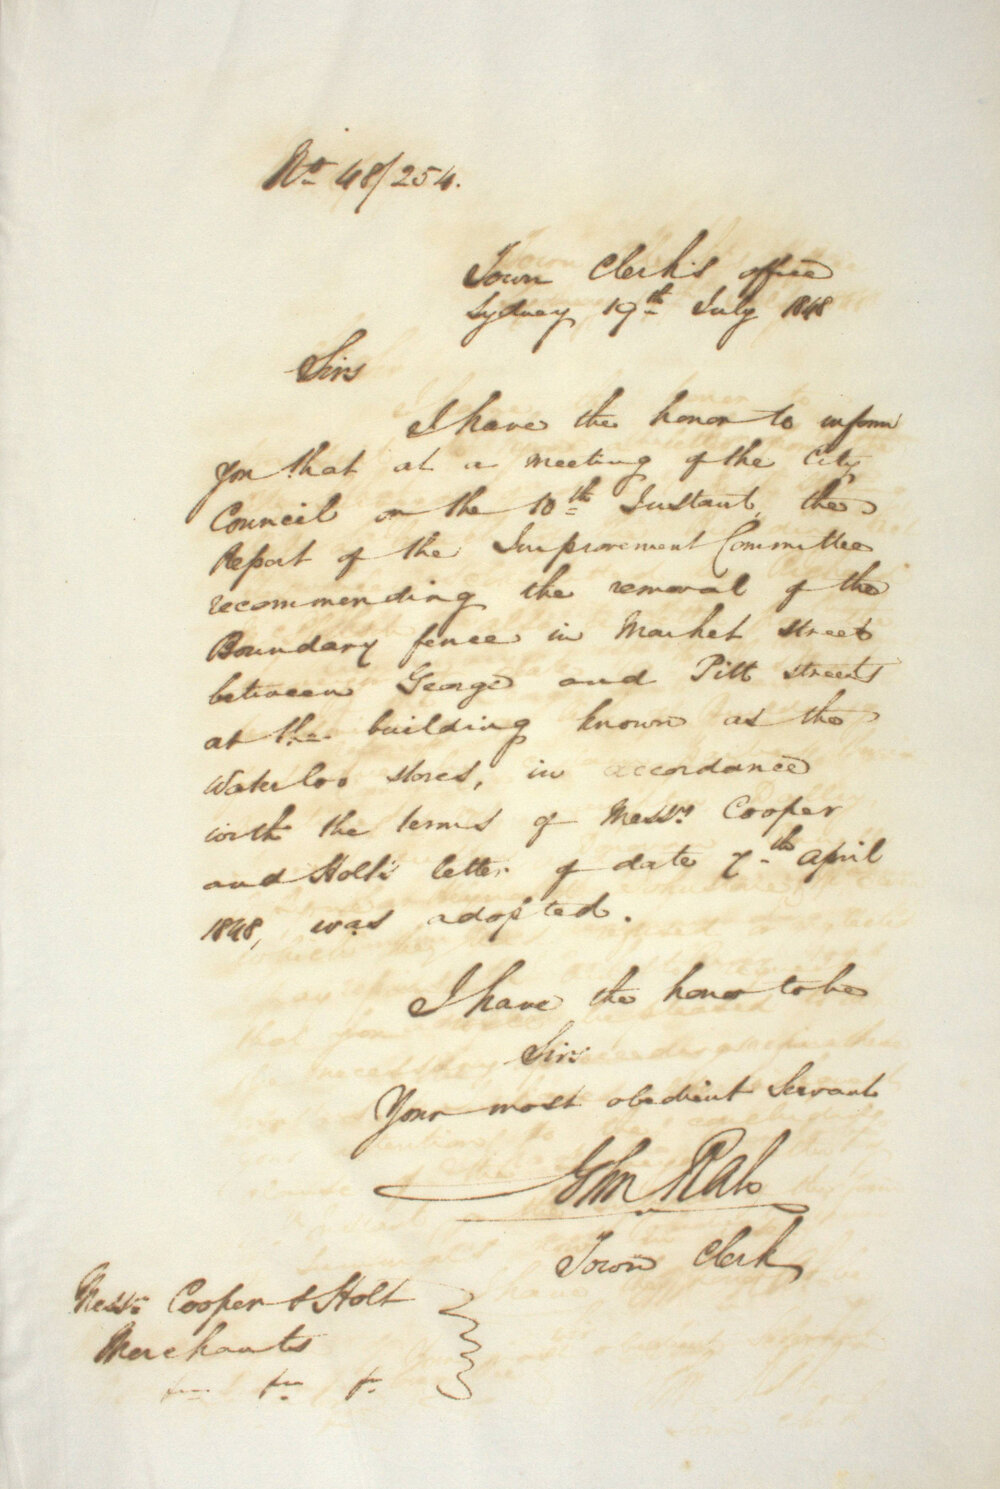 No. 48/254.
Town Clerk's office
Sydney 19th July 1848
Sirs
I have the honor to inform
you that at a meeting of the City
Council on the 10th Instant, the
Report of the Improvement Committee
recommending the removal of the
Boundary fence in Market street
between George and Pitt streets
at the building known as the
Waterloo stores, in accordance
with the terms of Messrs Cooper
and Holt's letter of date 7th April
1848, was adopted.
I have the honor to be
Sirs
Your most obedient Servant
John Rae
Town Clerk
Messrs Cooper & Holt
Merchants